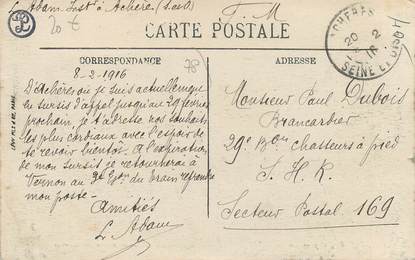 L. Adam Instr à Achères (S&O)
F. M
20 F
CARTE POSTALE
CORRESPONDANCE
ADRESSE
ACHÈRES
20
2
16
SEINE ET OISE
8-2-1916
D'Achères où je suis actuellement
en sursis d'appel jusqu'au 29 février
prochain, je t'adresse nos souhaits
les plus cordiaux avec l'espoir de
te revoir bientôt. A l'expiration
de mon sursit je retournerai à
Vernon au 3e Esc. du train reprendre
mon poste.
Amitiés
L. Adam
Monsieur Paul Dubois
Brancardier
29e Bon chasseurs à pied
S. H. R.
Secteur Postal 169